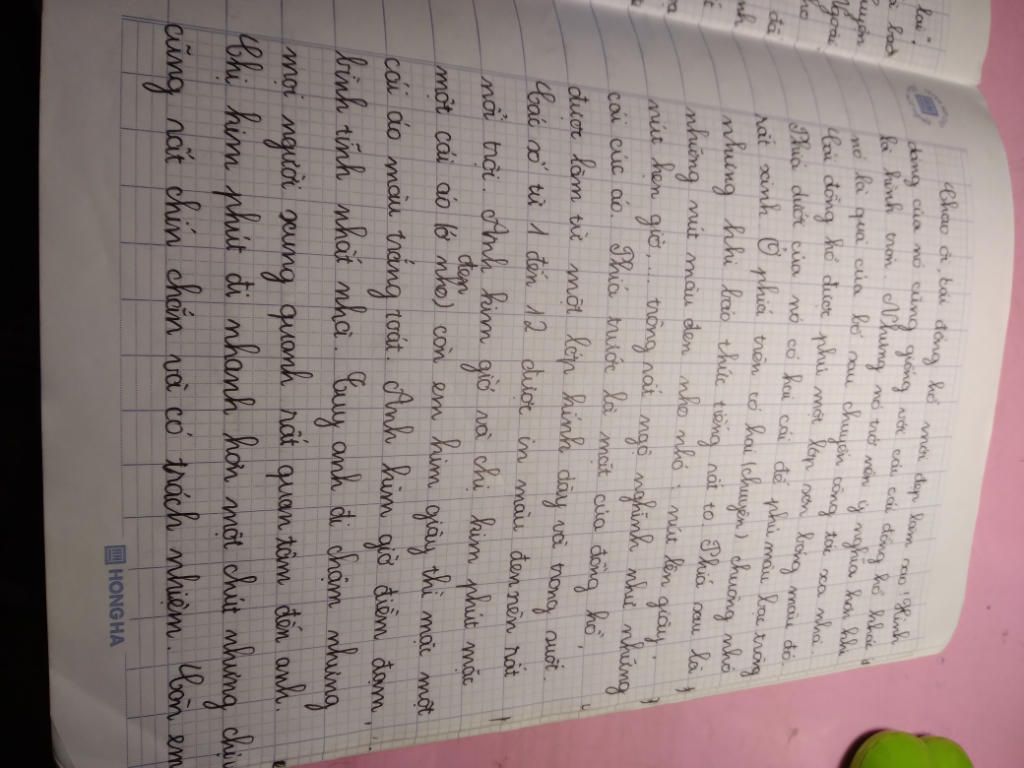 Chao ôi, cái đồng hồ mới đẹp làm sao! Hình
dáng của nó cũng giống với cái cái đồng hồ khác
là hình tròn. Nhưng nó trở nên ý nghĩa hơn khi
nó là quà của bố sau chuyến công tác xa nhà.
Cái đồng hồ được phủ một lớp sơn hồng màu đỏ.
Phía dưới của nó có hai cái đế phủ màu bạc trông
rất xinh. Ở phía trên có hai (chuyên) chuông nhỏ
nhưng khi báo thức tiếng rất to. Phía sau là
những nút màu đen nho nhỏ: nút lên giây,
nút hẹn giờ,... trông rất ngộ nghĩnh như những
cái cúc áo. Phía trước là mặt của đồng hồ
được làm từ một lớp kính dày và trong suốt.
Các số từ 1 đến 12 được in màu đen nên rất
nổi trội. Anh kim giờ và chị kim phút mặc
một cái áo (ô nho) đẹp còn em kim giây thì mặc một
cái áo màu trắng toát. Anh kim giờ điềm đạm,
bình tĩnh nhất nhà. Tuy anh đi chậm nhưng
mọi người xung quanh rất quan tâm đến anh.
Chị kim phút đi nhanh hơn một chút nhưng chị
cũng rất chín chắn và có trách nhiệm. Còn em
HONG HA
tai"